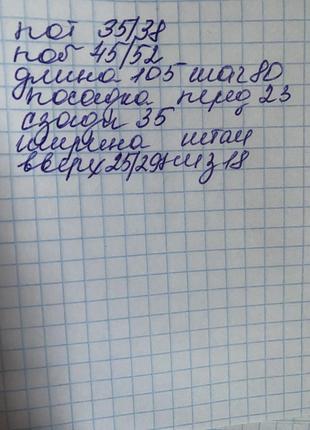 пот 35/38
поб 45/52
длина 105 шаг 80
посадка перед 23
сзади 35
ширина штан
вверх 25/29 низ 18